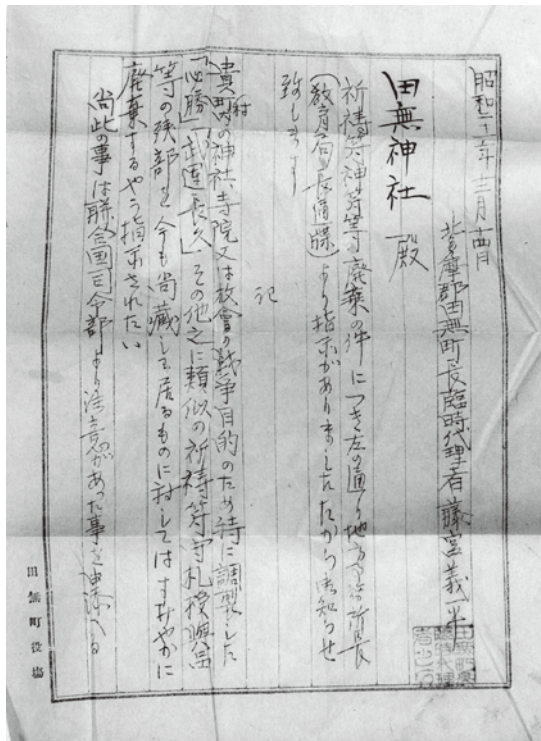 昭和二十二年三月十四日
北多摩郡田無町長臨時代理者 藤宮義一
田無神社 殿
祈祷符神符等廃棄の件につき左の通り地方事務所長
(教育局長通牒)より指示がありましたから御知らせ
致します
記
貴町村内の神社寺院又は教会の戦争目的のため特に調製した
「必勝」「武運長久」その他之に類似の祈祷符守札授與品
等の残部を今も尚蔵して居るものに対してはすみやかに
廃棄するやう指示されたい
尚此の事は聯合国司令部より注意があった事を申添へる
田無町役場